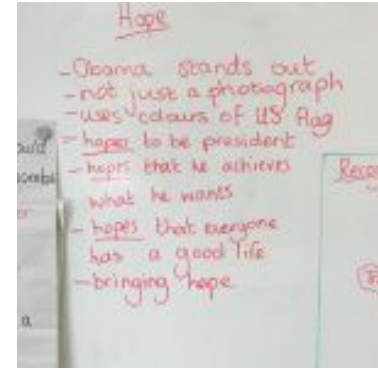 Hope
-Obama stands out
-not just a photograph
-uses colours of US flag
-hopes to be president
-hopes that he achieves
what he wants
- hopes that everyone
has a good life
-bringing hope
a